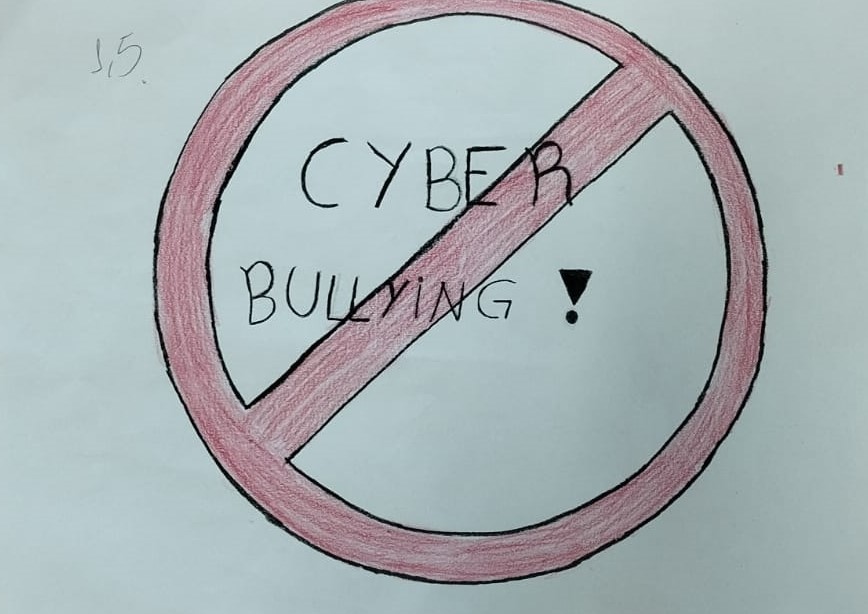 CYBER
BULLYiNG !